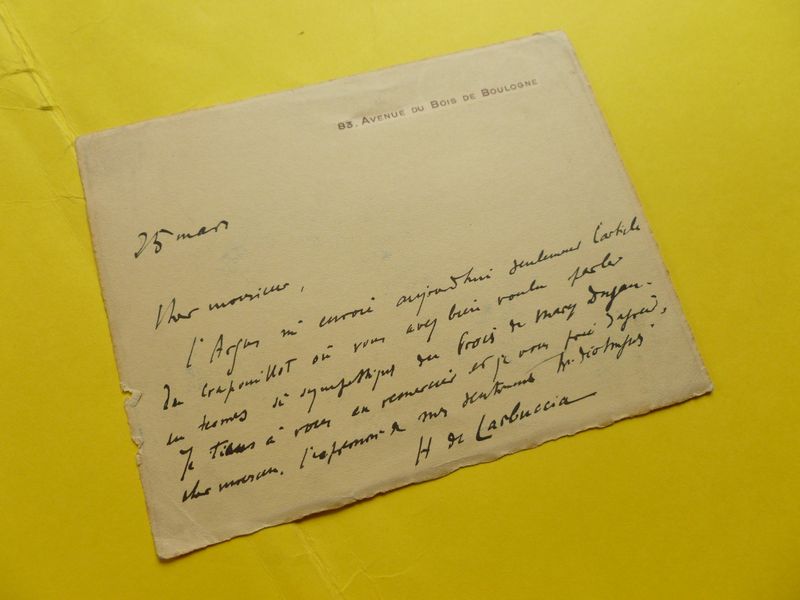 83, AVENUE DU BOIS DE BOULOGNE
25 mars
Cher monsieur,
l'Argus m'envoie aujourd'hui seulement l'article
du Crapouillot où vous avez bien voulu parler
en termes si sympathiques du Procès de Mary Dugan.
Je tiens à vous en remercier et je vous prie d'agréer,
cher monsieur, l'expression de mes sentiments
H de Carbuccia